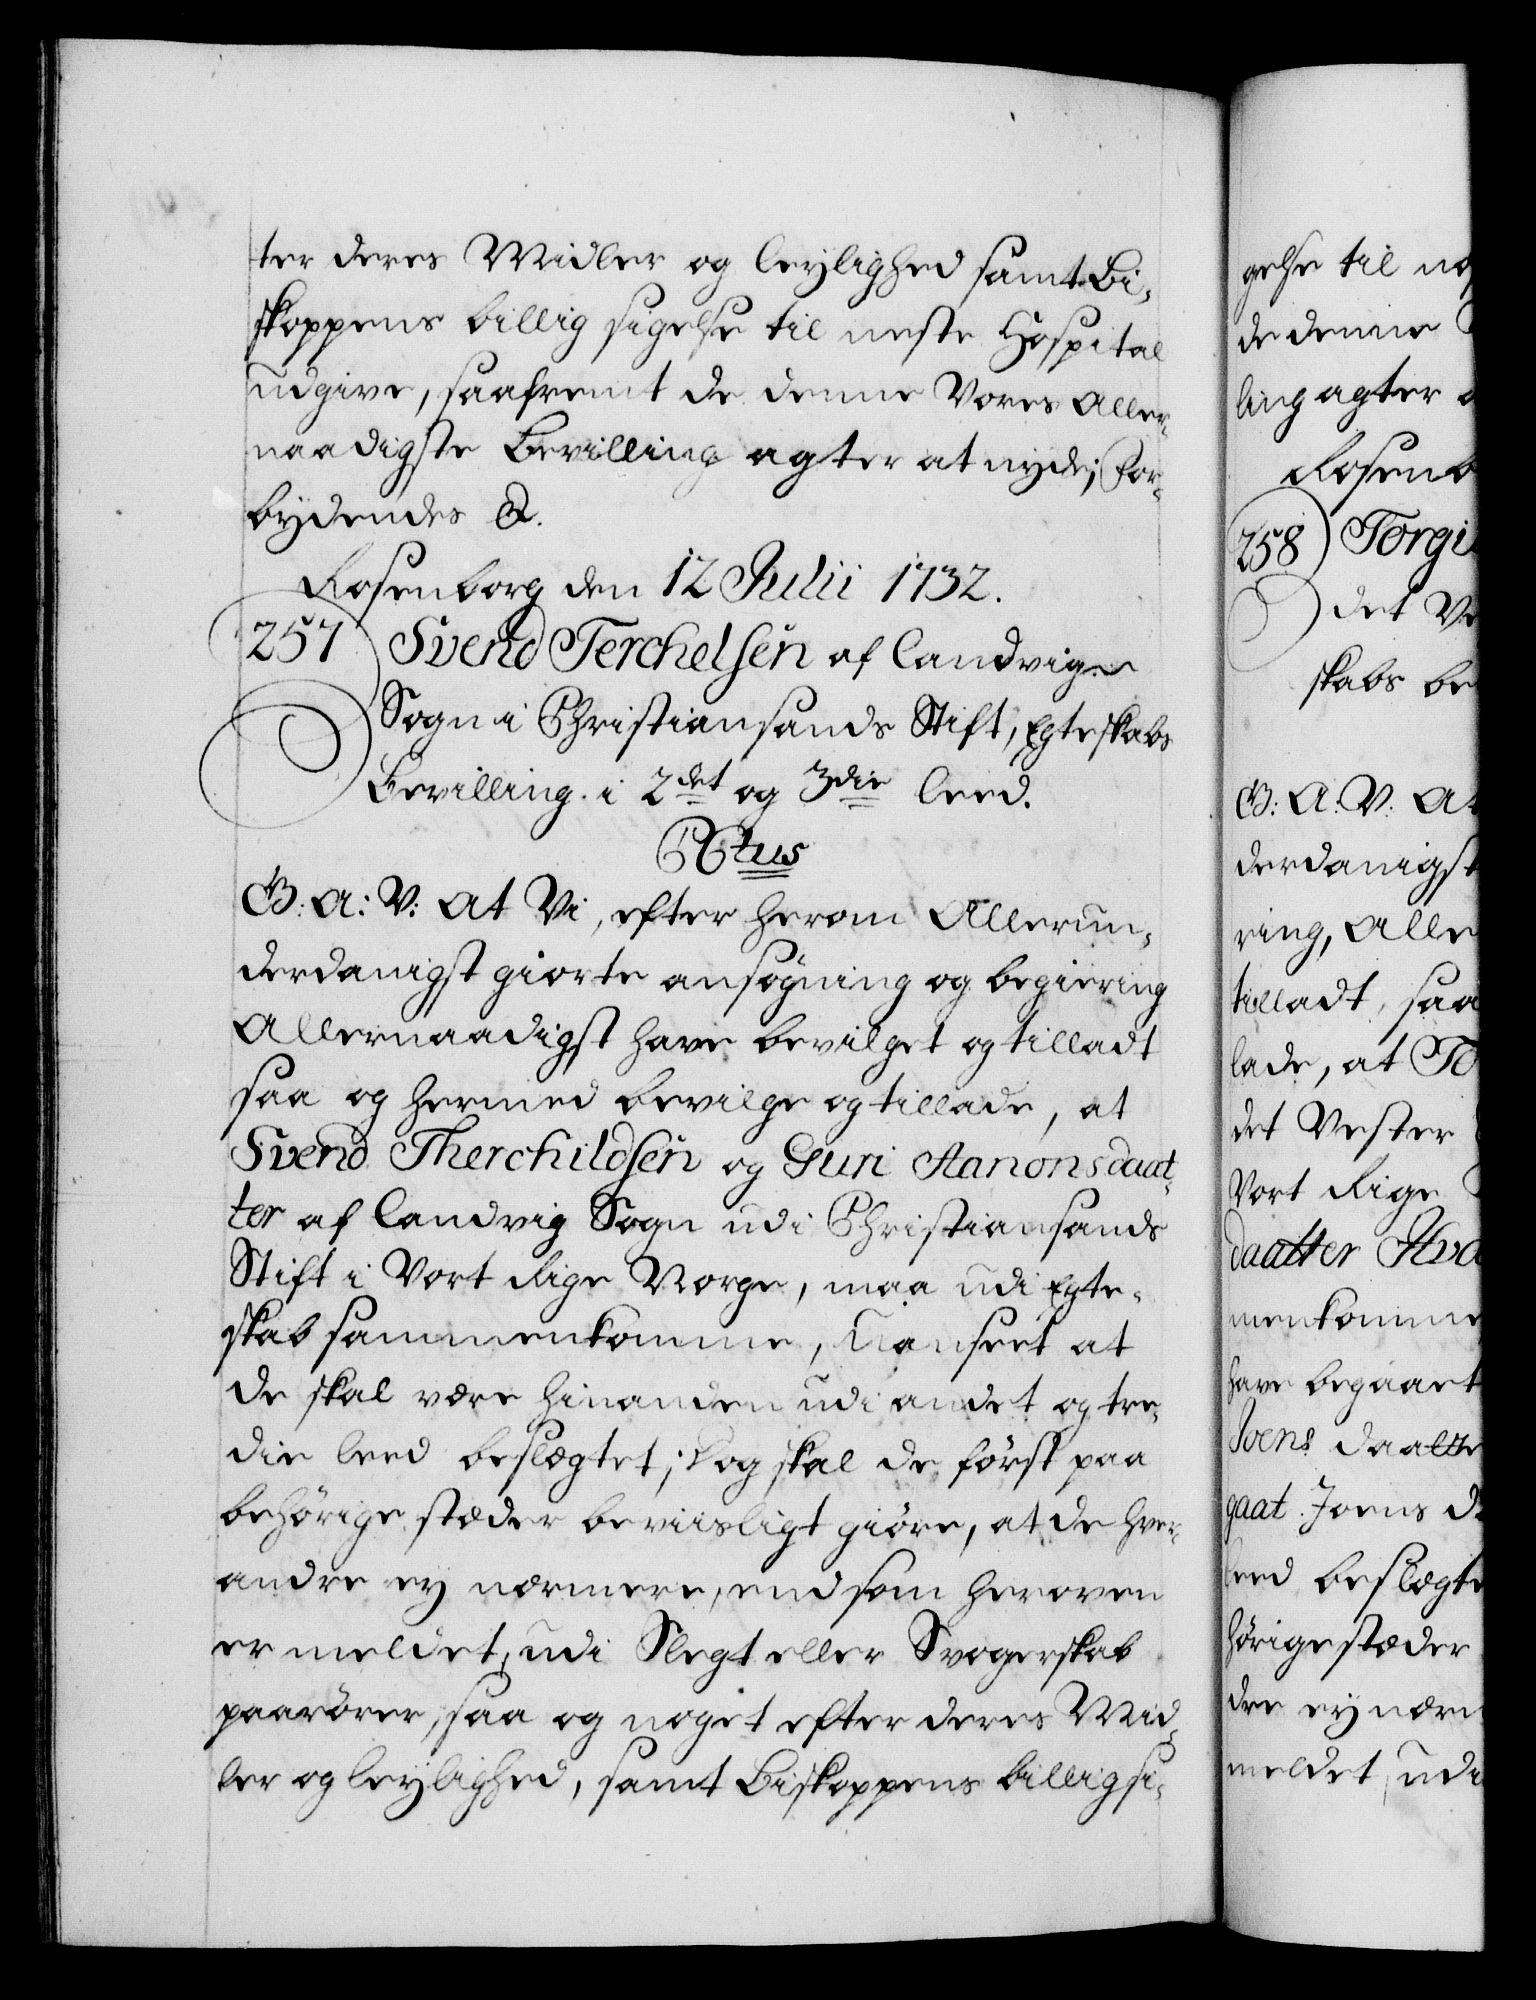 ter deres Midler og leylighed samt Bi-
skoppens billig sigelse til neste Hospital
udgive, saafremt de denne Vores Aller-
naadigste Bevilling agter at nyde; For-
bydendes &.
Rosenborg den 12 Julii 1732.
257 Svend Terchelsen af Landvigs
Sogn i Christiansands Stift, Egteskabs
Bevilling i 2det og 3die leed.
C6tus
G: A: V: At Vi, efter herom Allerun-
derdanigst giorte ansøgning og begiering
Allernaadigst have bevilget og tilladt
saa og hermed bevilge og tillade, at
Svend Therchildsen og Guri Aanonsdaat-
ter af Landvig Sogn udi Christiansands
Stift i Vort Rige Norge, maa udi Egte-
skab sammenkomme, Uanseet at
de skal være hinanden udi andet og tre-
die leed beslægtet; Dog skal de først paa
behørige stæder beviisligt giøre, at de hver-
andre ey nærmere, end som heroven
er meldet, udi Slegt eller Svogerskab
paarører, saa og noget efter deres Mid-
ler og leylighed, samt Biskoppens billig si-
gelse til ne
de denne
ling agter a
Rosenb
258 Torgi
det Ve
skabs be
G: A: V: At
derdanigst
ring, Alle
tilladt, saa
lade, at To
det Vester
Vort Rige
daatter Hvo
menkomme
have begaaet
Joens daatte
gaat Joens d
leed beslægte
hørige stæder
dre ey nærm
meldet, udi